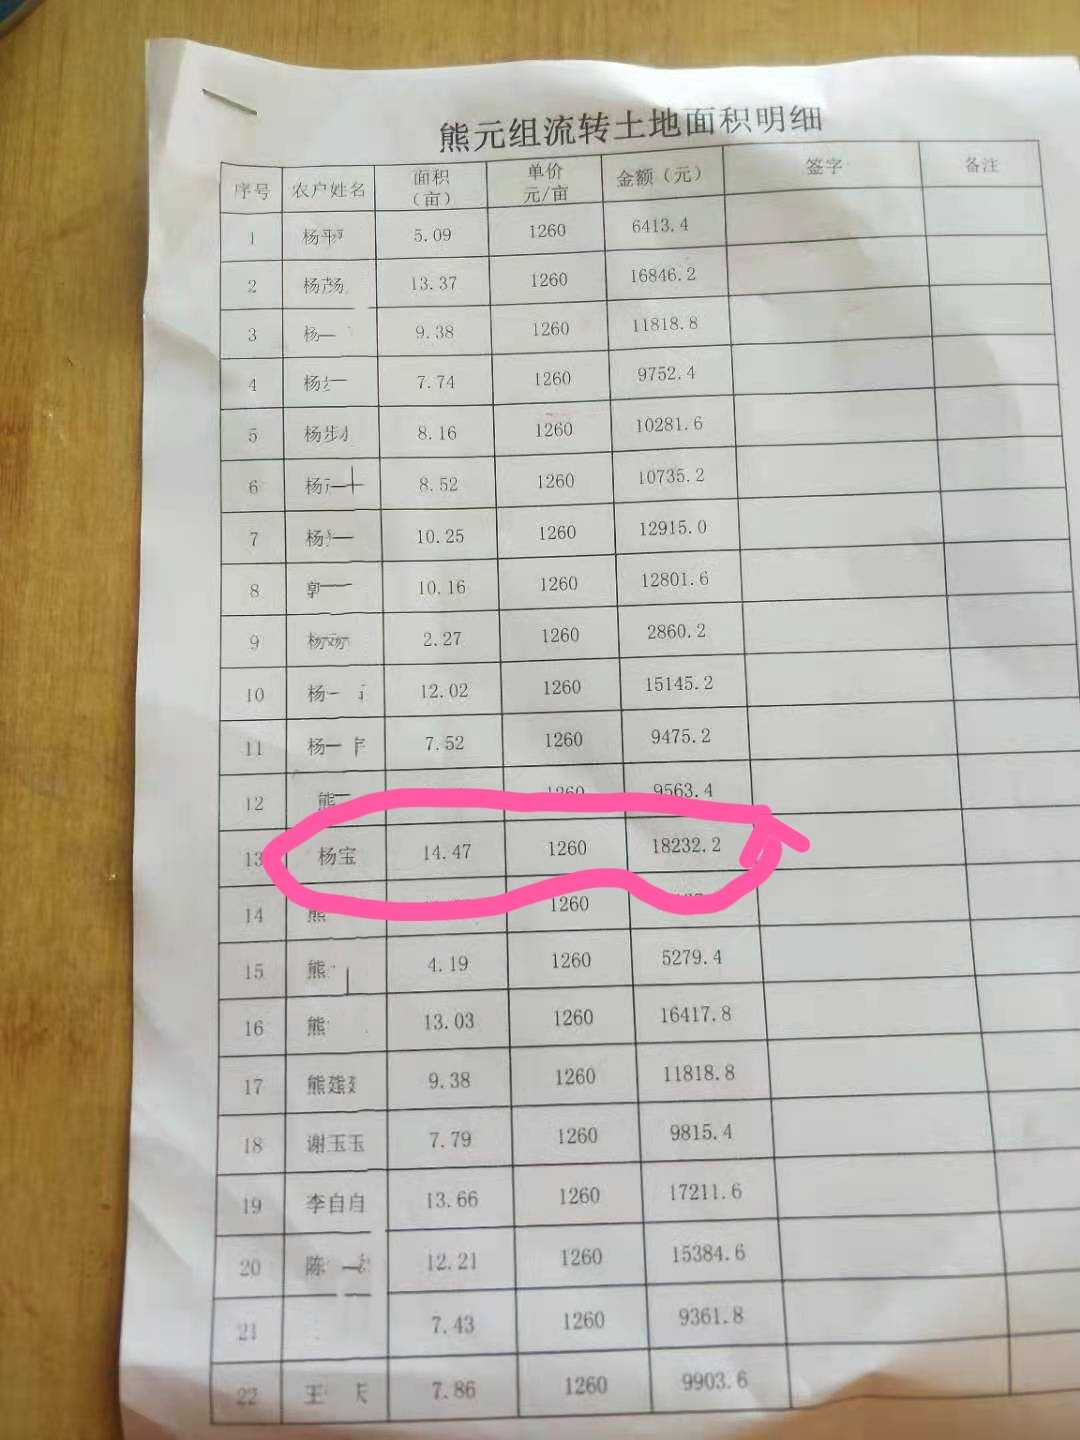 熊元组流转土地面积明细
序号 农户姓名 面积（亩） 单价元/亩 金额（元） 签字 备注
1 杨平 5.09 1260 6413.4
2 杨 13.37 1260 16846.2
3 杨 9.38 1260 11818.8
4 杨 7.74 1260 9752.4
5 杨 8.16 1260 10281.6
6 杨 8.52 1260 10735.2
7 杨 10.25 1260 12915.0
8 郭 10.16 1260 12801.6
9 杨 2.27 1260 2860.2
10 杨 12.02 1260 15145.2
11 杨 7.52 1260 9475.2
12 熊 1260 9563.4
13 杨宝 14.47 1260 18232.2
14 熊 1260
15 熊 4.19 1260 5279.4
16 熊 13.03 1260 16417.8
17 熊 9.38 1260 11818.8
18 谢玉玉 7.79 1260 9815.4
19 李自自 13.66 1260 17211.6
20 陈 12.21 1260 15384.6
21 7.43 1260 9361.8
22 王 7.86 1260 9903.6